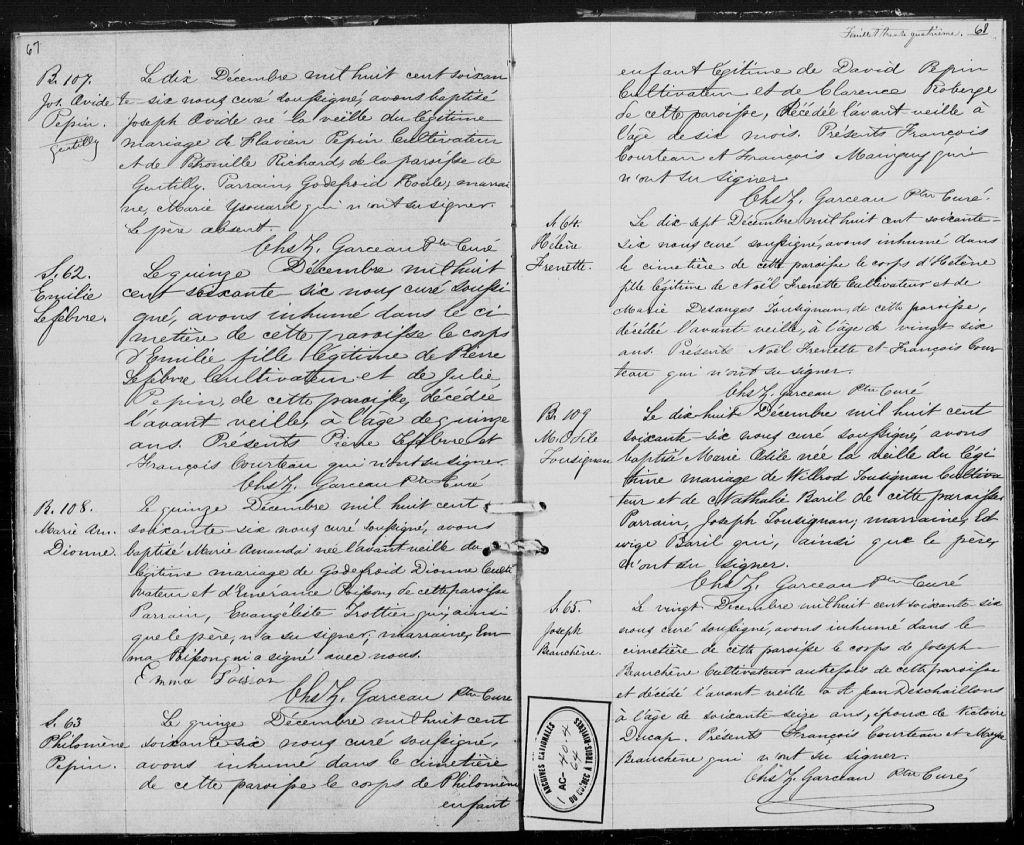 67
B. 107.
Jos. Ovide
Pepin.
Gentilly
Le dix Décembre mil huit cent soixan
te-six nous curé soussigné, avons baptisé
Joseph Ovide né la veille du légitime
mariage de Flavien Pepin Cultivateur
et de Pétronille Richard, de la paroisse de
Gentilly. Parrain, Godefroid Houle, marrai
ne, Marie Ysouard qui n'ont su signer.
Le père absent.
Chs Z. Garceau Ptre Curé
S. 62.
Emilie
Lefebvre.
Le quinze Décembre mil huit
cent soixante-six nous curé soussi
gné, avons inhumé dans le ci-
metière de cette paroisse le corps
d'Emilie fille légitime de Pierre
Lefebvre Cultivateur et de Julie
Pepin, de cette paroisse, décédée
l'avant veille, à l'âge de quinze
ans. Présents Pierre Lefebvre et
François Courteau qui n'ont su signer.
Chs Z. Garceau Ptre Curé
B. 108.
Marie Am.
Dionne.
Le quinze Décembre mil huit cent
soixante-six nous curé soussigné, avons
baptisé Marie Amanda née l'avant veille du
légitime mariage de Godefroid Dionne Culti
vateur et d'Emérance Poisson, de cette paroisse
Parrain, Evangéliste Trottier qui, ainsi
que le père, n'a su signer; marraine, Em-
ma Poisson qui a signé avec nous.
Emma Poisson
Chs Z. Garceau Ptre Curé
S. 63
Philomène
Pepin.
Le quinze Décembre mil huit cent
soixante six nous curé soussigné,
avons inhumé dans le cimetière
de cette paroisse le corps de Philomène
enfant
Feuillet trente quatrième. 68
enfant légitime de David Pepin
Cultivateur et de Clarence Roberge
de cette paroisse, Décédé l'avant veille à
l'âge de six mois. Présents François
Courteau et François Mainguy qui
n'ont su signer
Chs Z. Garceau Ptre Curé.
S. 64.
Hélène
Frenette.
Le dix sept Décembre mil huit cent soixante-
six nous curé soussigné, avons inhumé dans
le cimetière de cette paroisse le corps d'Hélène
fille légitime de Noël Frenette Cultivateur et de
Marie Desanges Tousignan, de cette paroisse,
décédée l'avant veille, à l'âge de vingt six
ans. Présents Noël Frenette et François Cour-
teau qui n'ont su signer.
Chs Z. Garceau Ptre Curé
B. 109
M. Odile
Tousignan
Le dix huit Décembre mil huit cent
soixante-six nous curé soussigné, avons
baptisé Marie Odile née la veille du légi
time mariage de Wilfrod Tousignan Cultiva
teur et de Nathalie Baril de cette paroisse
Parrain, Joseph Tousignan; marraine, Ed
wige Baril qui, ainsi que le père,
n'ont su signer.
Chs Z. Garceau Ptre Curé
S. 65.
Joseph
Beauchêne.
Le vingt Décembre mil huit cent soixante-six
nous curé soussigné, avons inhumé dans le
cimetière de cette paroisse le corps de Joseph
Beauchêne Cultivateur autrefois de cette paroisse
et décédé l'avant veille à St Jean Deschaillons
à l'âge de soixante-seize ans, époux de Victoire
Ducap. Présents François Courteau et
Beauchêne qui n'ont su signer.
Chs Z. Garceau Ptre Curé
ARCHIVES NATIONALES
AC-4014
64
DU QUÉBEC À TROIS-RIVIÈRES